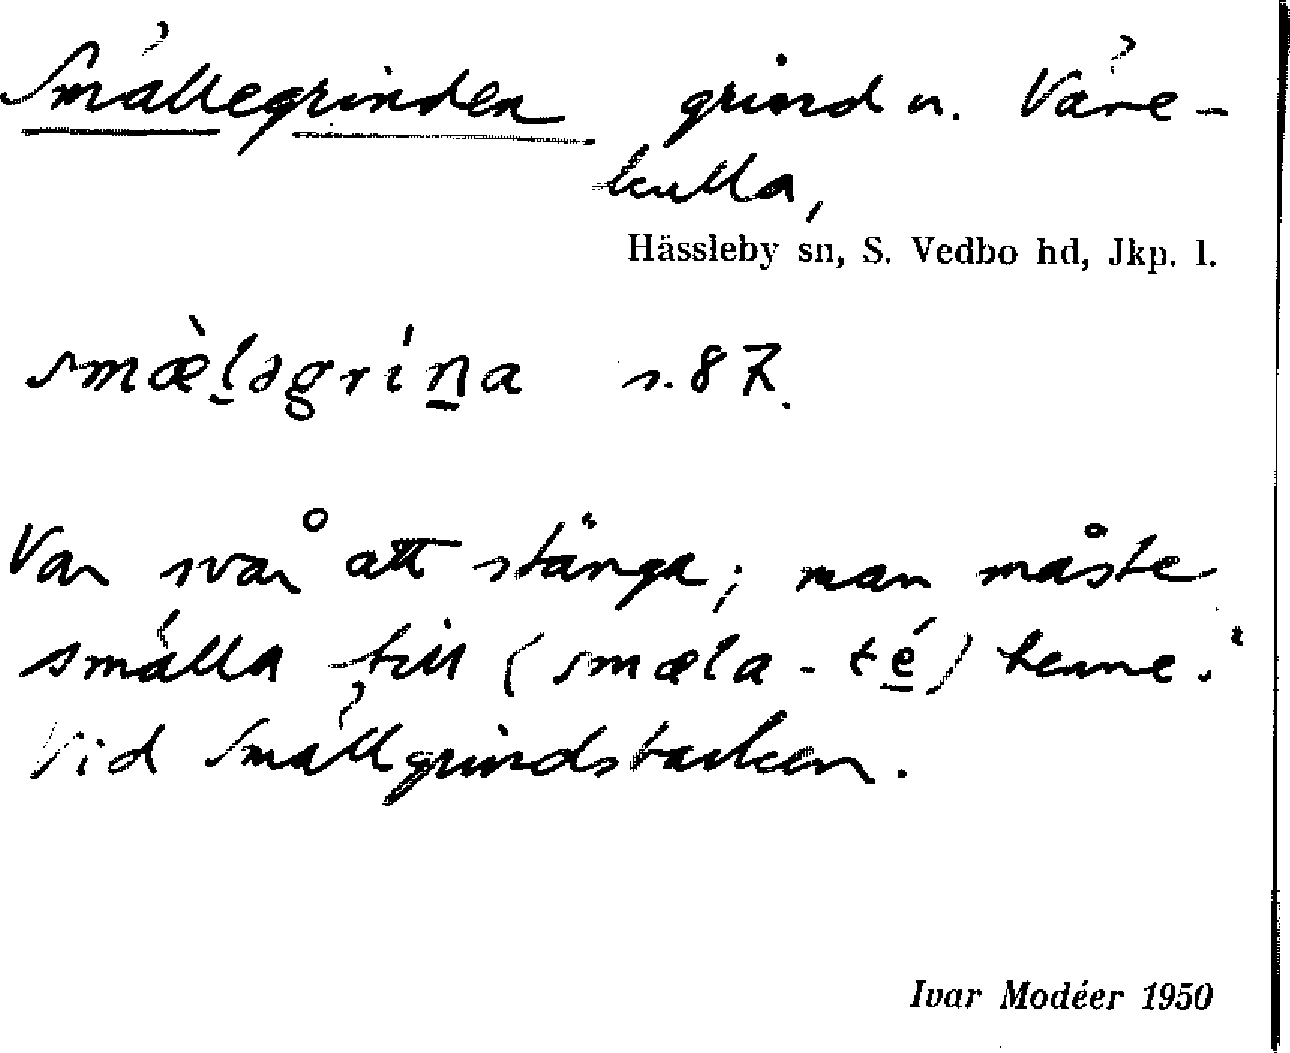 Smällegrinden grind n. Väre-
kulla,
Hässleby sn, S. Vedbo hd, Jkp. l.
smæ̀l̠əgrín̠a s. 87.
Var svår att stänga; man måste
smälla till (smæla - té̠) henne."
Vid Smällgrindsbacken.
Ivar Modéer 1950